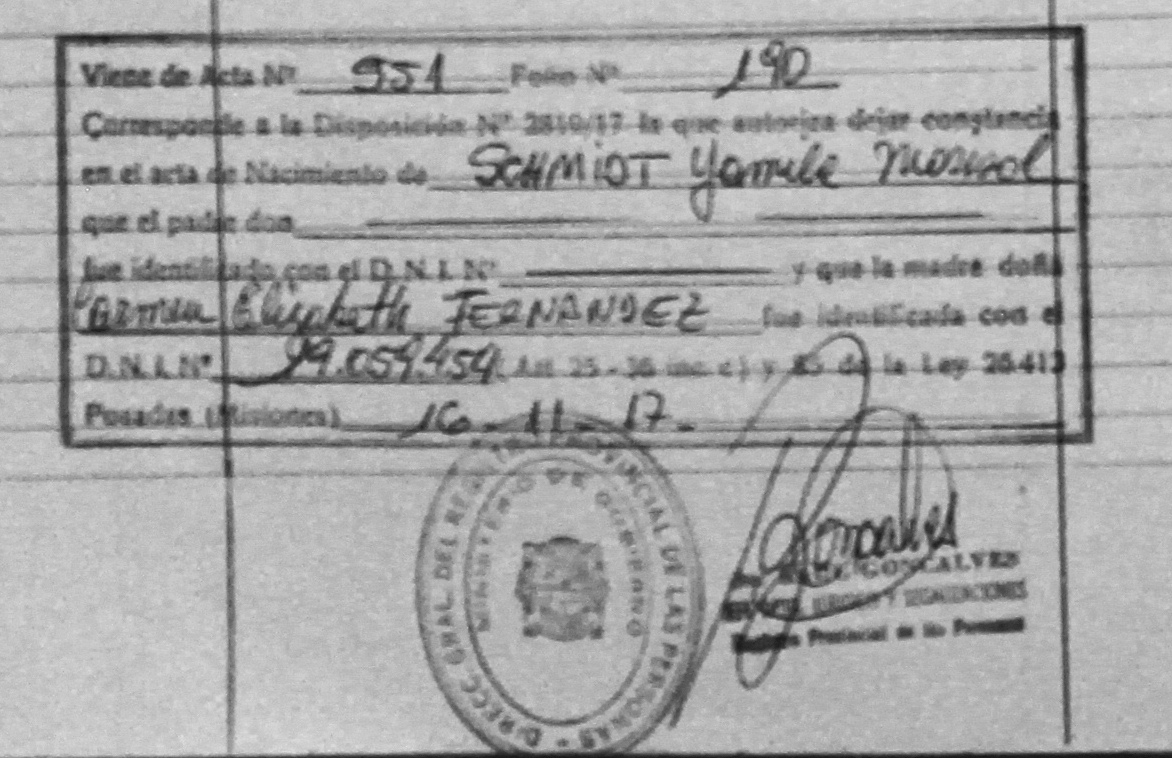 Viene de Acta Nº 951 Folio Nº 190
Corresponde a la Disposición Nº 2810/17 la que autoriza dejar constancia
en el acta de Nacimiento de SCHMIDT Yamile Marisol
que el padre don
fue identificado con el D.N.I. Nº y que la madre doña
Carmen Elizabeth FERNANDEZ fue identificada con el
D.N.I. Nº 99.059.454 (Art 25 - 36 inc c) y 85 de la Ley 26.413
Posadas (Misiones) 16-11-17.
DIRECC. GRAL. DEL REGISTRO PROVINCIAL DE LAS PERSONAS
MINISTERIO DE GOBIERNO
Goncalves
GONCALVES
Y LEGALIZACIONES
Provincial de las Personas